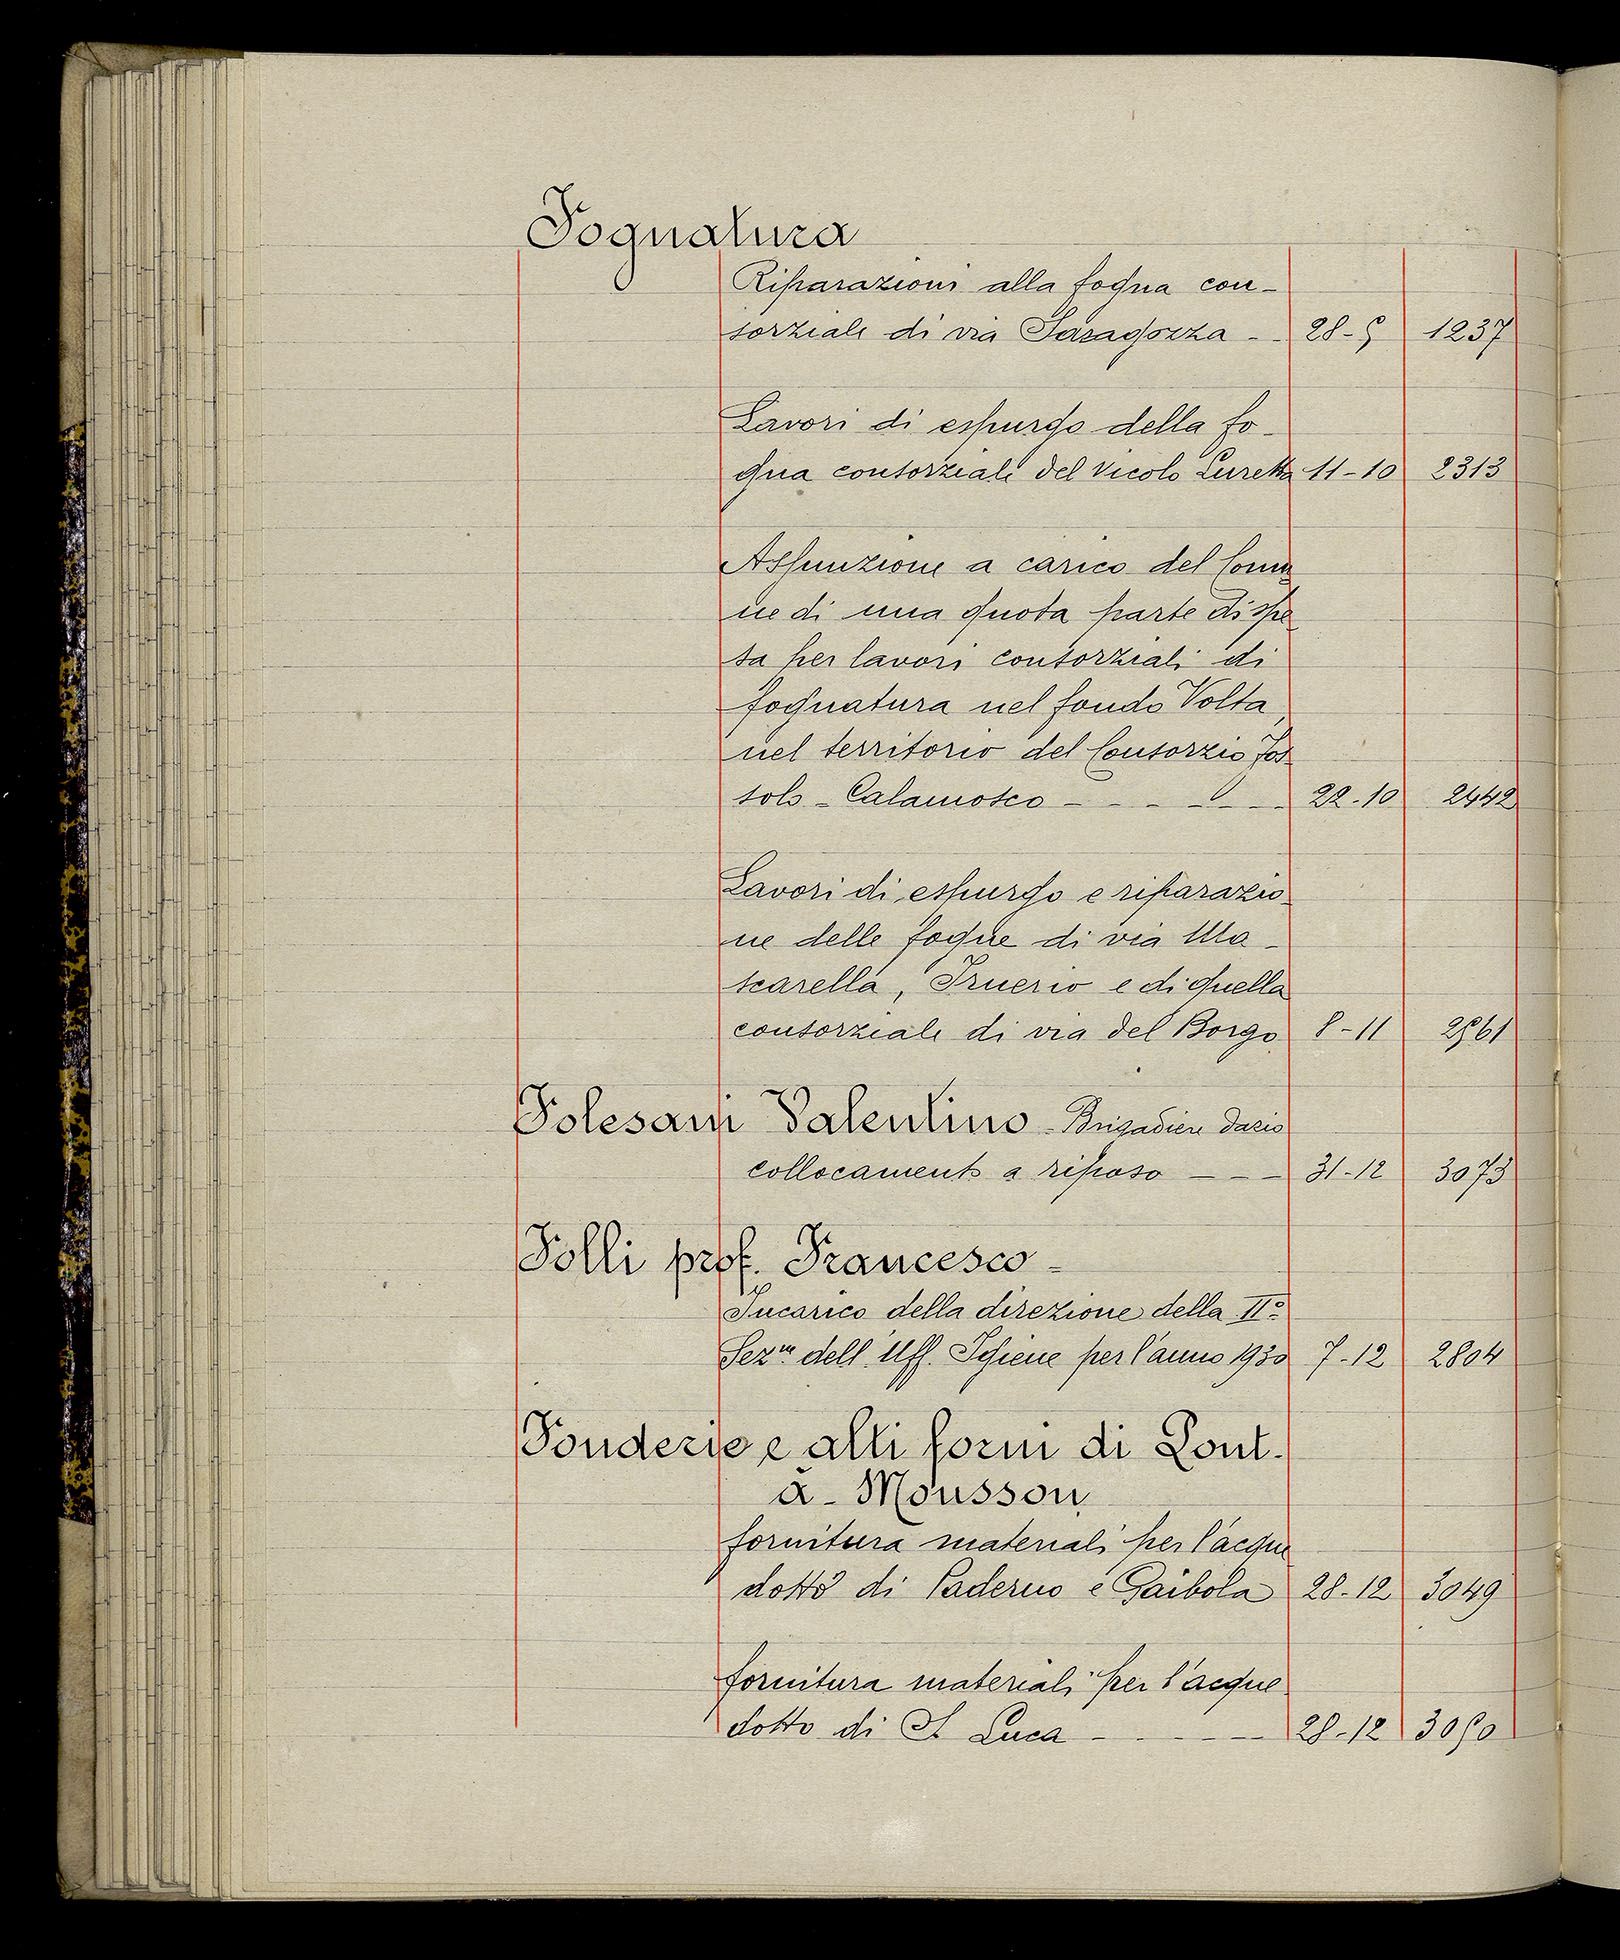 Fognatura
Riparazioni alla fogna con-
sorziale di via Saragozza - - 28-5 1237
Lavori di espurgo della fo-
gna consorziale del vicolo Luretta 11-10 2313
Assunzione a carico del Comu-
ne di una quota parte di spe-
sa per lavori consorziali di
fognatura nel fondo Volta,
nel territorio del Consorzio Fos-
solo - Calamosco - - - - - - 22-10 2442
Lavori di espurgo e riparazio-
ne delle fogne di via Ma-
scarella, Irnerio e di quella
consorziale di via del Borgo 8-11 2561
Folesani Valentino - Brigadiere dazio
collocamento a riposo - - - 31-12 3073
Folli prof. Francesco -
Incarico della direzione della IIa
Sezne dell'Uff. Igiene per l'anno 1930 7-12 2804
Fonderie e alti forni di Pont-
à - Mousson
fornitura materiali per l'acque
dotto di Paderno e Gaibola 28-12 3049
fornitura materiali per l'acque
dotto di S. Luca - - - - - 28-12 3050